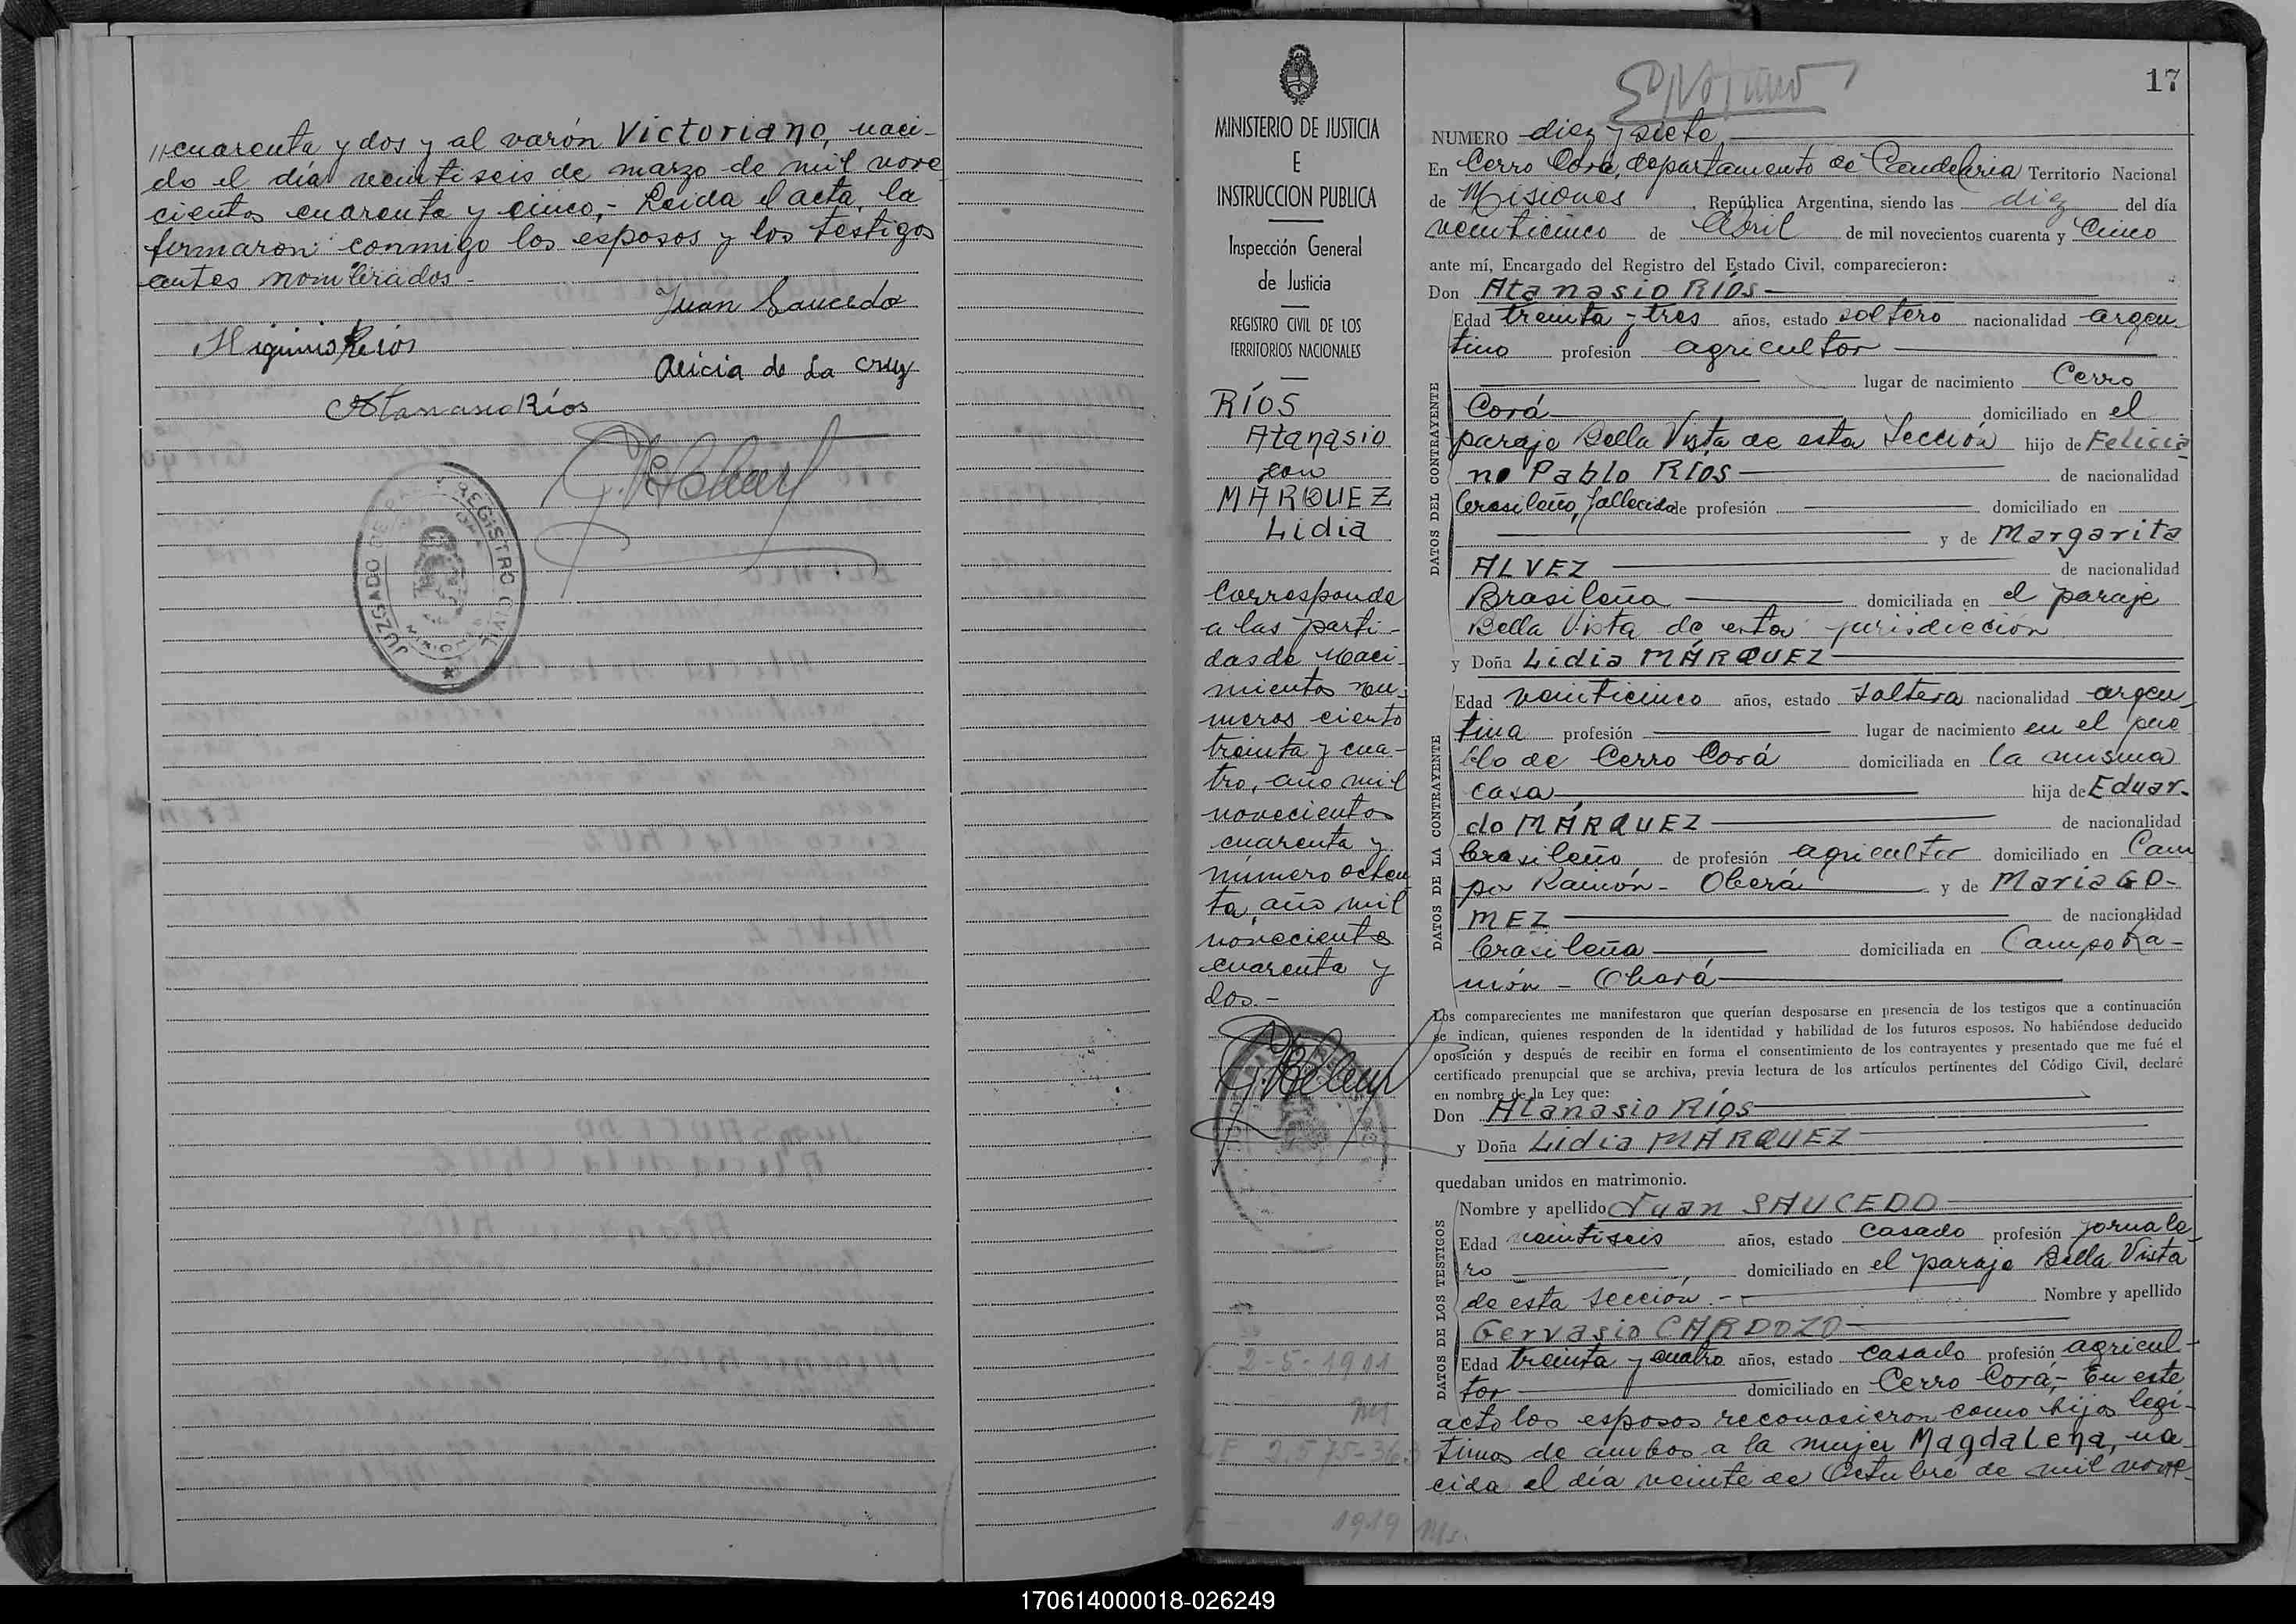 //cuarenta y dos y al varón Victoriano, naci-
do el día veintiseis de marzo de mil nove
cientos cuarenta y cinco,- Leida el acta, la
firmaron conmigo los esposos y los testigos
antes nombrados.-
Juan Saucedo
Higinio Ríos
Alicia de la Cruz
Atanasio Ríos
JUZGADO DE PAZ Y REGISTRO CIVIL
17
MINISTERIO DE JUSTICIA
E
INSTRUCCION PUBLICA
Inspección General
de Justicia
REGISTRO CIVIL DE LOS
TERRITORIOS NACIONALES
RÍOS
Atanasio
con
MÁRQUEZ
Lidia
Corresponde
a las parti-
das de Naci-
mientos nú-
meros ciento
treinta y cua-
tro, año mil
novecientos
cuarenta y
número ochen
ta, año mil
novecientos
cuarenta y
dos.-
V. 2-5-1911
2.575-363
1919 Ms.
NUMERO diez y siete
En Cerro Corá, departamento de Candelaria Territorio Nacional
de Misiones, República Argentina, siendo las diez del día
veinticinco de Abril de mil novecientos cuarenta y Cinco
ante mí, Encargado del Registro del Estado Civil, comparecieron:
Don Atanasio RÍOS-
DATOS DEL CONTRAYENTE
Edad treinta y tres años, estado soltero nacionalidad argen-
tino profesión agricultor
lugar de nacimiento Cerro
Corá domiciliado en el
paraje Bella Vista de esta Sección hijo de Felicia-
no Pablo RÍOS de nacionalidad
brasileño, fallecido de profesión domiciliado en
y de Margarita
ALVEZ de nacionalidad
Brasileña domiciliada en el paraje
Bella Vista de esta jurisdicción
y Doña Lidia MÁRQUEZ
DATOS DE LA CONTRAYENTE
Edad veinticinco años, estado soltera nacionalidad argen-
tina profesión lugar de nacimiento en el pue
blo de Cerro Corá domiciliada en la misma
casa hija de Eduar-
do MÁRQUEZ de nacionalidad
brasileño de profesión agricultor domiciliado en Cam
po Ramón - Oberá y de María GO-
MEZ de nacionalidad
brasileña domiciliada en Campo Ra-
món - Oberá
Los comparecientes me manifestaron que querían desposarse en presencia de los testigos que a continuación
se indican, quienes responden de la identidad y habilidad de los futuros esposos. No habiéndose deducido
oposición y después de recibir en forma el consentimiento de los contrayentes y presentado que me fué el
certificado prenupcial que se archiva, previa lectura de los artículos pertinentes del Código Civil, declaré
en nombre de la Ley que:
Don Atanasio Ríos
y Doña Lidia MÁRQUEZ
quedaban unidos en matrimonio.
DATOS DE LOS TESTIGOS
Nombre y apellido Juan SAUCEDO
Edad veintiseis años, estado casado profesión jornale-
ro domiciliado en el paraje Bella Vista
de esta sección.- Nombre y apellido
Gervasio CARDOZO
Edad treinta y cuatro años, estado casado profesión agricul-
tor domiciliado en Cerro Corá,- En este
acto los esposos reconocieron como hijos legí-
timos de ambos a la mujer Magdalena, na-
cida el día veinte de Octubre de mil nove-
170614000018-026249